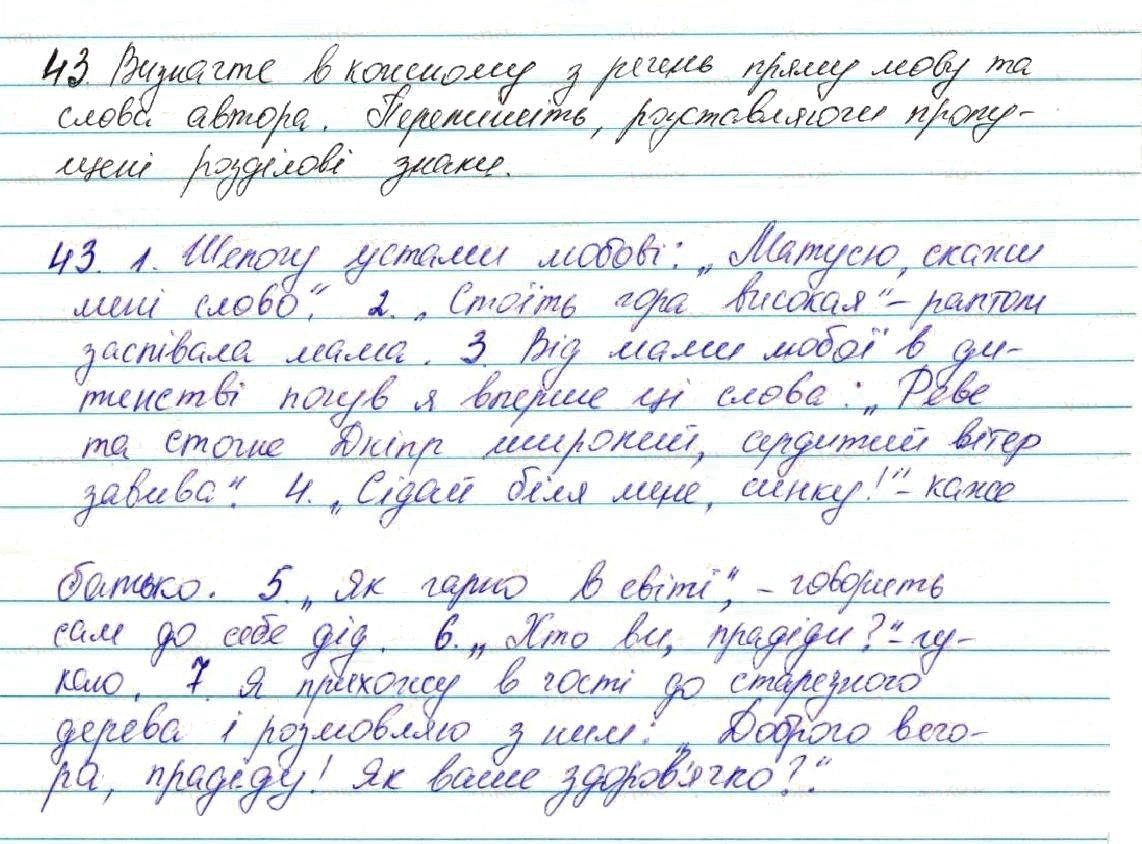 43. Визначте в кожному з речень пряму мову та
слова автора. Перепишіть, розставляючи пропу-
щені розділові знаки.
43. 1. Шепочу устами любові: „Матусю, скажи
мені слово“. 2. „Стоїть гора високая“ – раптом
заспівала мама. 3. Від мами любої в ди-
тинстві почув я вперше ці слова: „Реве
та стогне Дніпр широкий, сердитий вітер
завива“. 4. „Сідай біля мене, синку!“ – каже
батько. 5. „Як гарно в світі“, – говорить
сам до себе дід. 6. „Хто ви, прадіди?“ – гу-
каю. 7. Я приходжу в гості до старезного
дерева і розмовляю з ним: „Доброго вечо-
ра, прадіду! Як ваше здоров'ячко?“